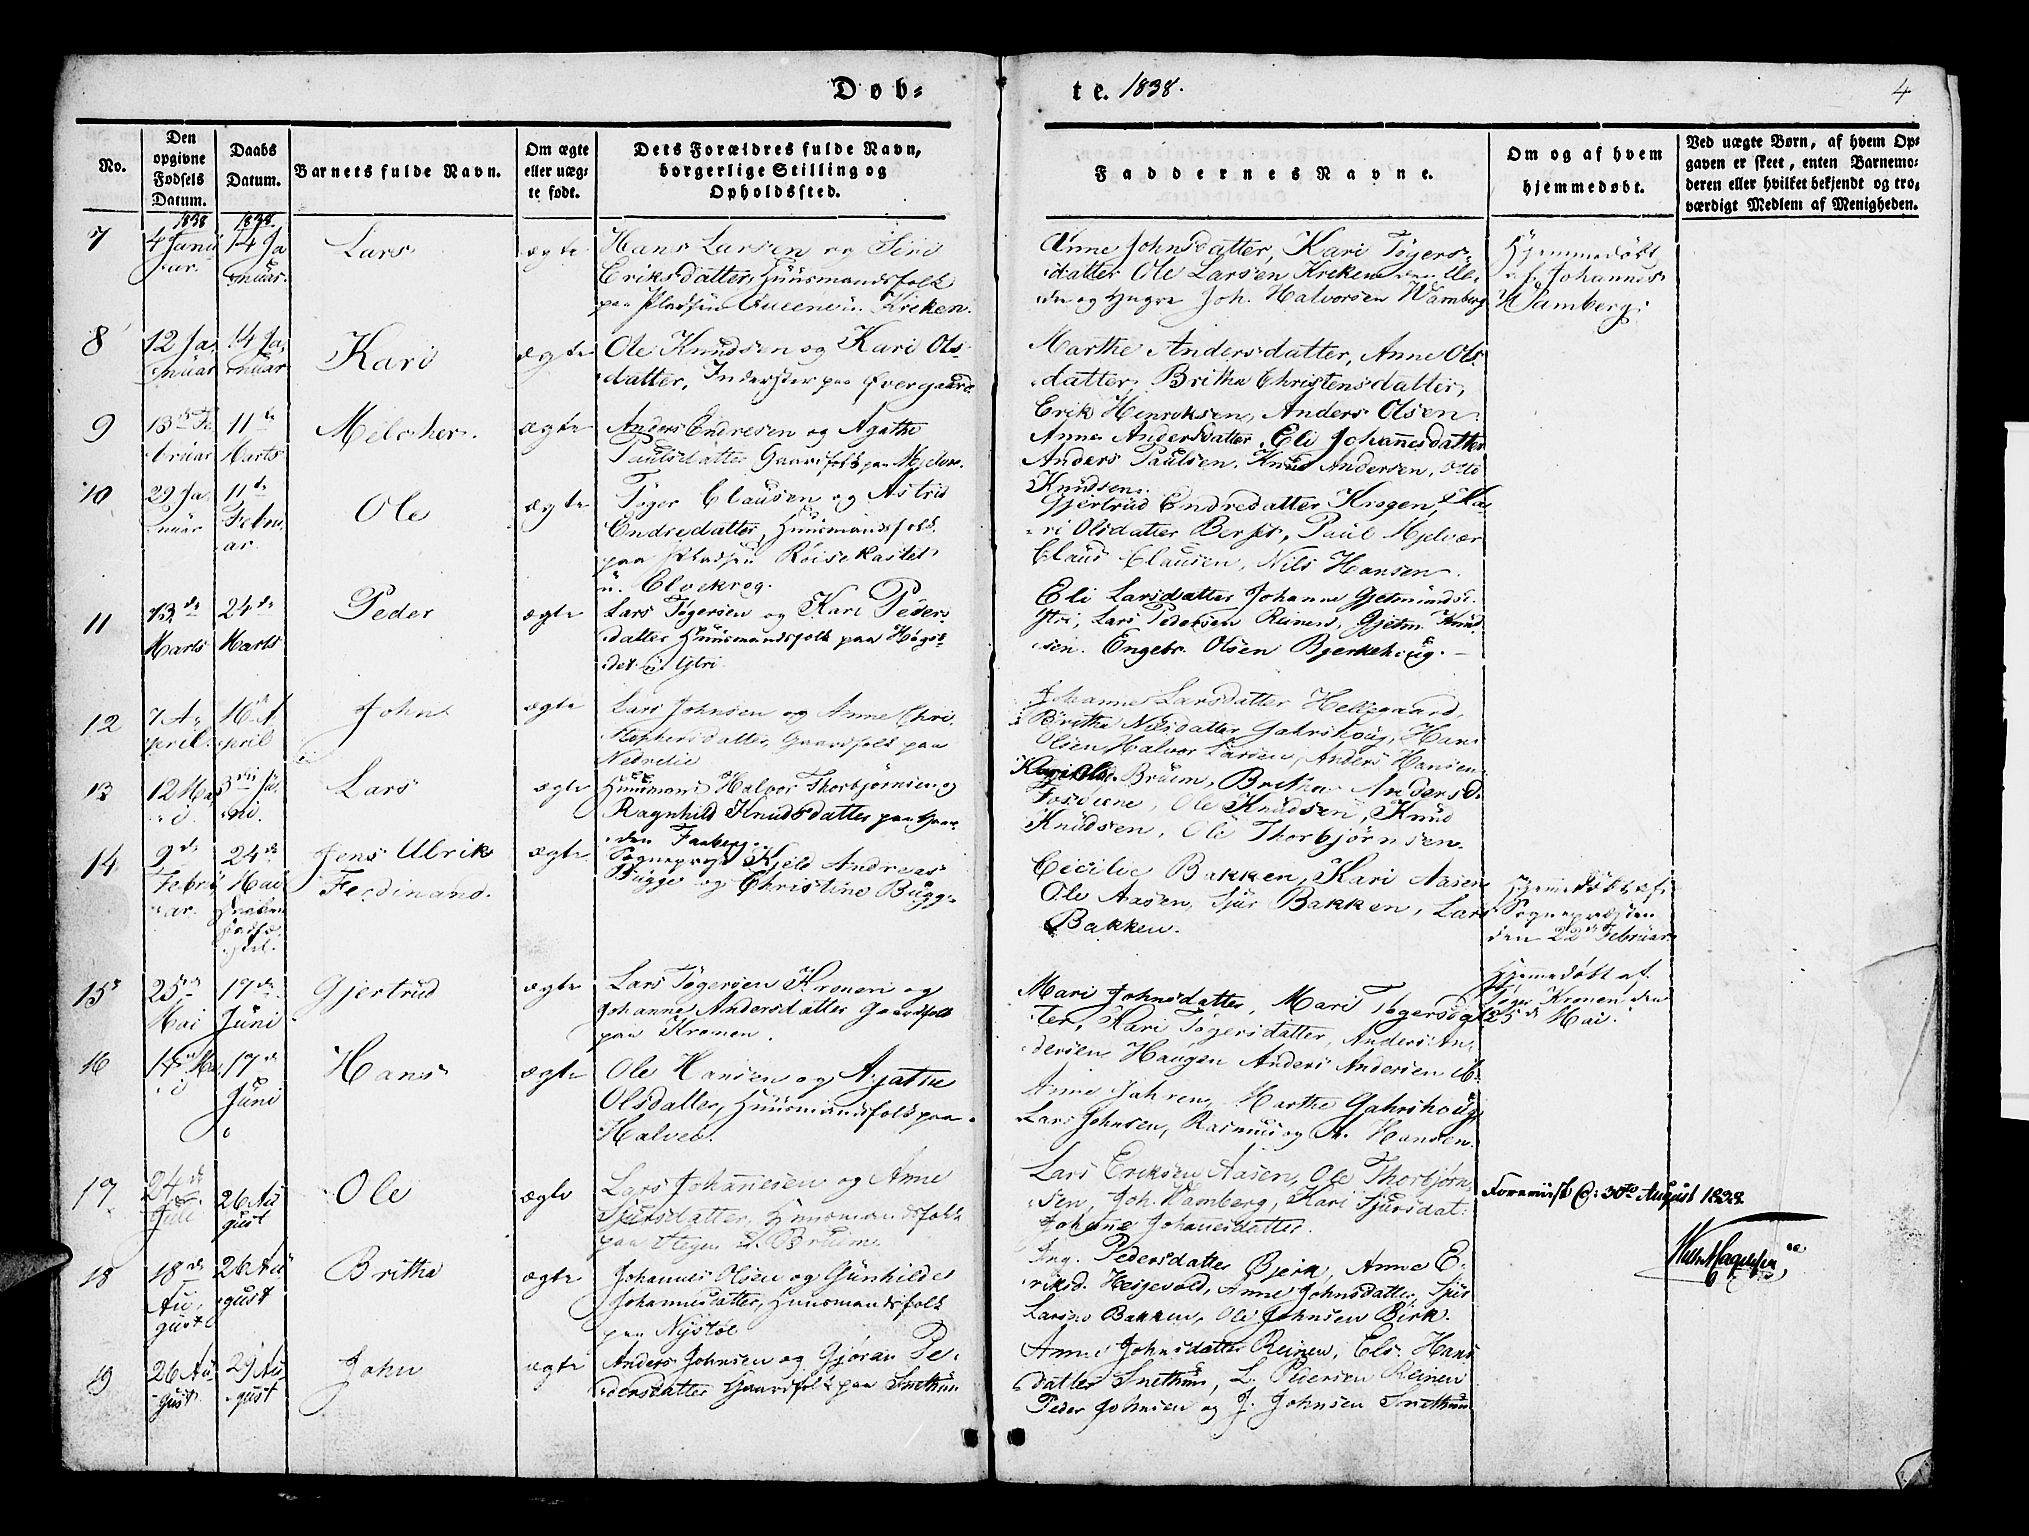 Døb-
te. 1838.
4
No.
Den opgivne Fødsels Datum.
Daabs Datum.
Barnets fulde Navn.
Om ægte eller uæg-te født.
Dets Forældres fulde Navn, borgerlige Stilling og Opholdssted.
Faddernes Navne.
Om og af hvem hjemmedøbt.
Ved uægte Børn, af hvem Op-gaven er skeet, enten Barnemo-deren eller hvilket bekjendt og tro-værdigt Medlem af Menigheden.
1838 1838.
7 4 Janu 14 Ja Lars ægte Hans Larsen og Siri
ar. nuar. Eriksdatter, Huusmandsfolk
paa Pladsen u. Kreken.
Anne Johnsdatter, Kari Tøgers-
datter Ole Larsen Kreken
og Joh. Halvorsen Wamberg
Hjemmedøbt
af Johannes
Wamberg.
8 12 Ja 14 Ja Kari ægte Ole Knudsen og Kari Ols-
nuar nuar datter, Inderster paa Øvergaard
Marthe Andersdatter, Anne Ols-
datter, Britha Christensdatter,
Erik Henriksen, Anders Olsen.
9 13de Fe 11te Melcher. ægte Anders Endresen og Agathe
bruar Marts Paulsdatter Gaardfolk paa Mjelvær
Anne Andersdatter, Eli Johannesdatter
Anders Paulsen, Knud Andersen, Ole
Knudsen.
10 29 Ja 11te Ole ægte Tøger Clausen og Astrid
nuar Febru Endredatter, Huusmandsfolk
ar. paa Pladsen Røisekastet
u. Elvekrog.
Gjertrud Endredatter Krogen, Ka-
ri Olsdatter Berset, Paul Mjelvær
Claus Clausen, Nils Hansen.
11 13de 24de Peder ægte Lars Tøgersen og Kari Peders
Marts Marts datter Huusmandsfolk paa Høgse
det u. Ytri
Eli Larsdatter Johanne Gjetmunds-
Ytri, Lars Pedersen Reinen, Gjetm. Knud
sen. Engebr. Olsen Bjerkehoug.
12 7 A 16 A John ægte Lars Johnsen og Anne Chri
pril pril stophersdatter, Gaardfolk paa
Nedrelie
Johanne Larsdatter Hellegaard,
Britha Nilsdatter Gahrshoug, Hans
Olsen Halvor Larsen, Anders Hansen
13 12 Ma 3die Ju Lars ægte Huusmand Halvor Thorbjørnsen og
i. ni. Ragnhild Knudsdatter paa Gaar
den Faaberg
Kari Ols. Bruum, Britha Andersd.
Fosdiene, Ole Knudsen, Knud
Knudsen, Ole Thorbjørnsen.
14 9de 24de Jens Ulrik ægte Sogneprest Kjeld Andreas
Febru Mai Ferdinand. Bugge og Christine Bugge
ar.
Cecilie Bakken, Kari Aasen
Ole Aasen, Sjur Bakken, Lars
Bakken.
Hjemmedøbt af
Sognepresten
den 22de Februar
15 25de 17de Gjertrud ægte Lars Tøgersen Kronen og
Mai Juni Johanne Andersdatter Gaardfolk
paa Kronen.
Mari Johnsdatter, Mari Tøgersdat
ter, Kari Tøgersdatter, Anders An-
dersen Haugen Anders Andersen
Hjemmedøbt af
Tøger Kronen den
25de Mai.
16 17de Hans ægte Ole Hansen og Agathe
Juni Olsdatter, Huusmandsfolk paa
Halveo.
Anne Jahren, Marthe Gahrshoug
Lars Johnsen, Rasmus og A. Hansen.
17 24de 26 Au Ole ægte Lars Johannesen og Anne
gust Sjursdatter, Huusmandsfolk
paa Stegen u. Bruum
Lars Eriksen Aasen, Ole Thorbjørn
sen, Joh. Wamberg, Kari Sjursdat.
Johanne Johannesdatter
Foreviist d: 30te August 1838
18 18de 26 Au Britha ægte Johannes Olsen og Gunhilde
Au gust Johannesdatter, Huusmandsfolk
gust paa Nystøl
Ing. Pedersdatter Bjerk, Anne E-
riksd. Heigevold, Anne Johnsdatter, Sjur
Larsen Bakken, Ole Johnsen Birk.
19 26 Au 29 Au John ægte Anders Johnsen og Gjøran Pe
gust gust dersdatter Gaardfolk paa Snethun
Anne Johnsdatter Reinen, Els. Hans
datter Snethun, L. Pedersen Reinen
Peder Johnsen og J. Johnsen Snethun